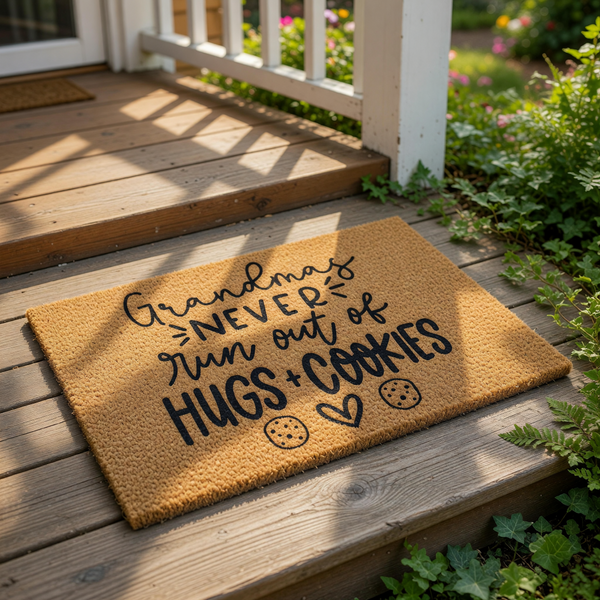 Grandmas
NEVER
run out of
HUGS + COOKIES